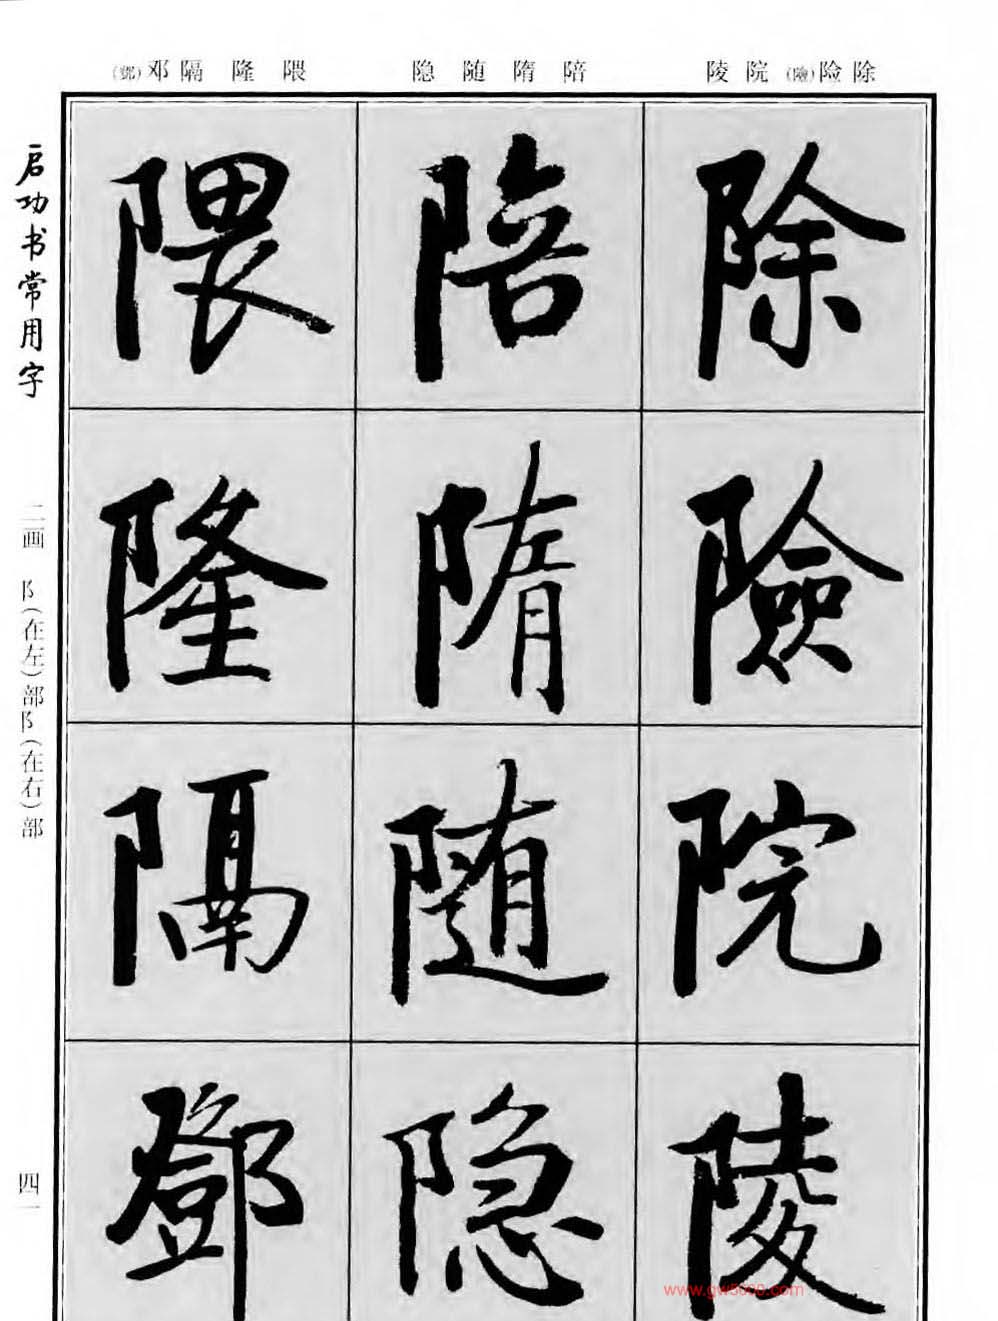 除险(險)院陵
陪隋随隐
隈隆隔邓(鄧)
除
險
院
陵
陪
隋
随
隐
隈
隆
隔
鄧
启功书常用字
二画 阝(在左)部阝(在右)部
四一
www.gw5000.com